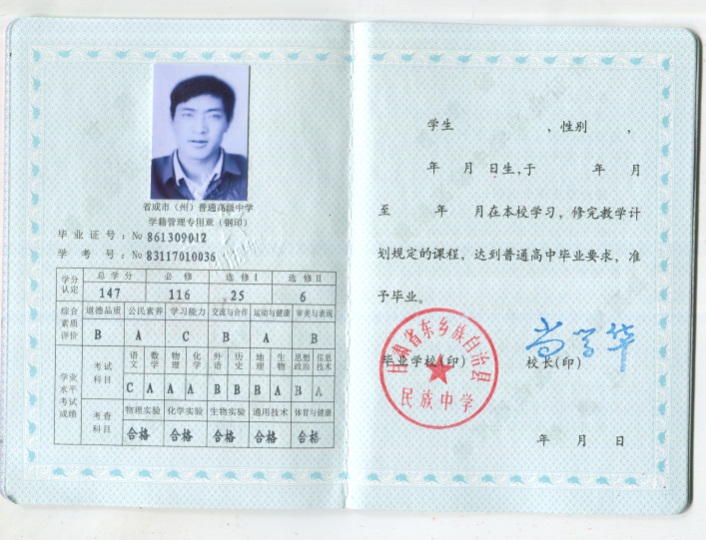 省或市（州）普通高级中学
学籍管理专用章（钢印）
毕业证号：No 861309012
学考号：No 83117010036
学分认定 总学分 必修 选修Ⅰ 选修Ⅱ
147 116 25 6
综合素质评价 道德品质 公民素养 学习能力 交流与合作 运动与健康 审美与表现
B A C B A B
学业水平考试成绩 考试科目 语文 数学 物理 化学 外语 历史 地理 生物 思想政治 信息技术
C A A A B B B A B A
考查科目 物理实验 化学实验 生物实验 通用技术 体育与健康
合格 合格 合格 合格 合格
学生 ，性别 ，
年 月 日生,于 年 月
至 年 月在本校学习，修完教学计
划规定的课程，达到普通高中毕业要求，准
予毕业。
甘肃省东乡族自治县
民族中学
毕业学校(印) 校长(印)
年 月 日